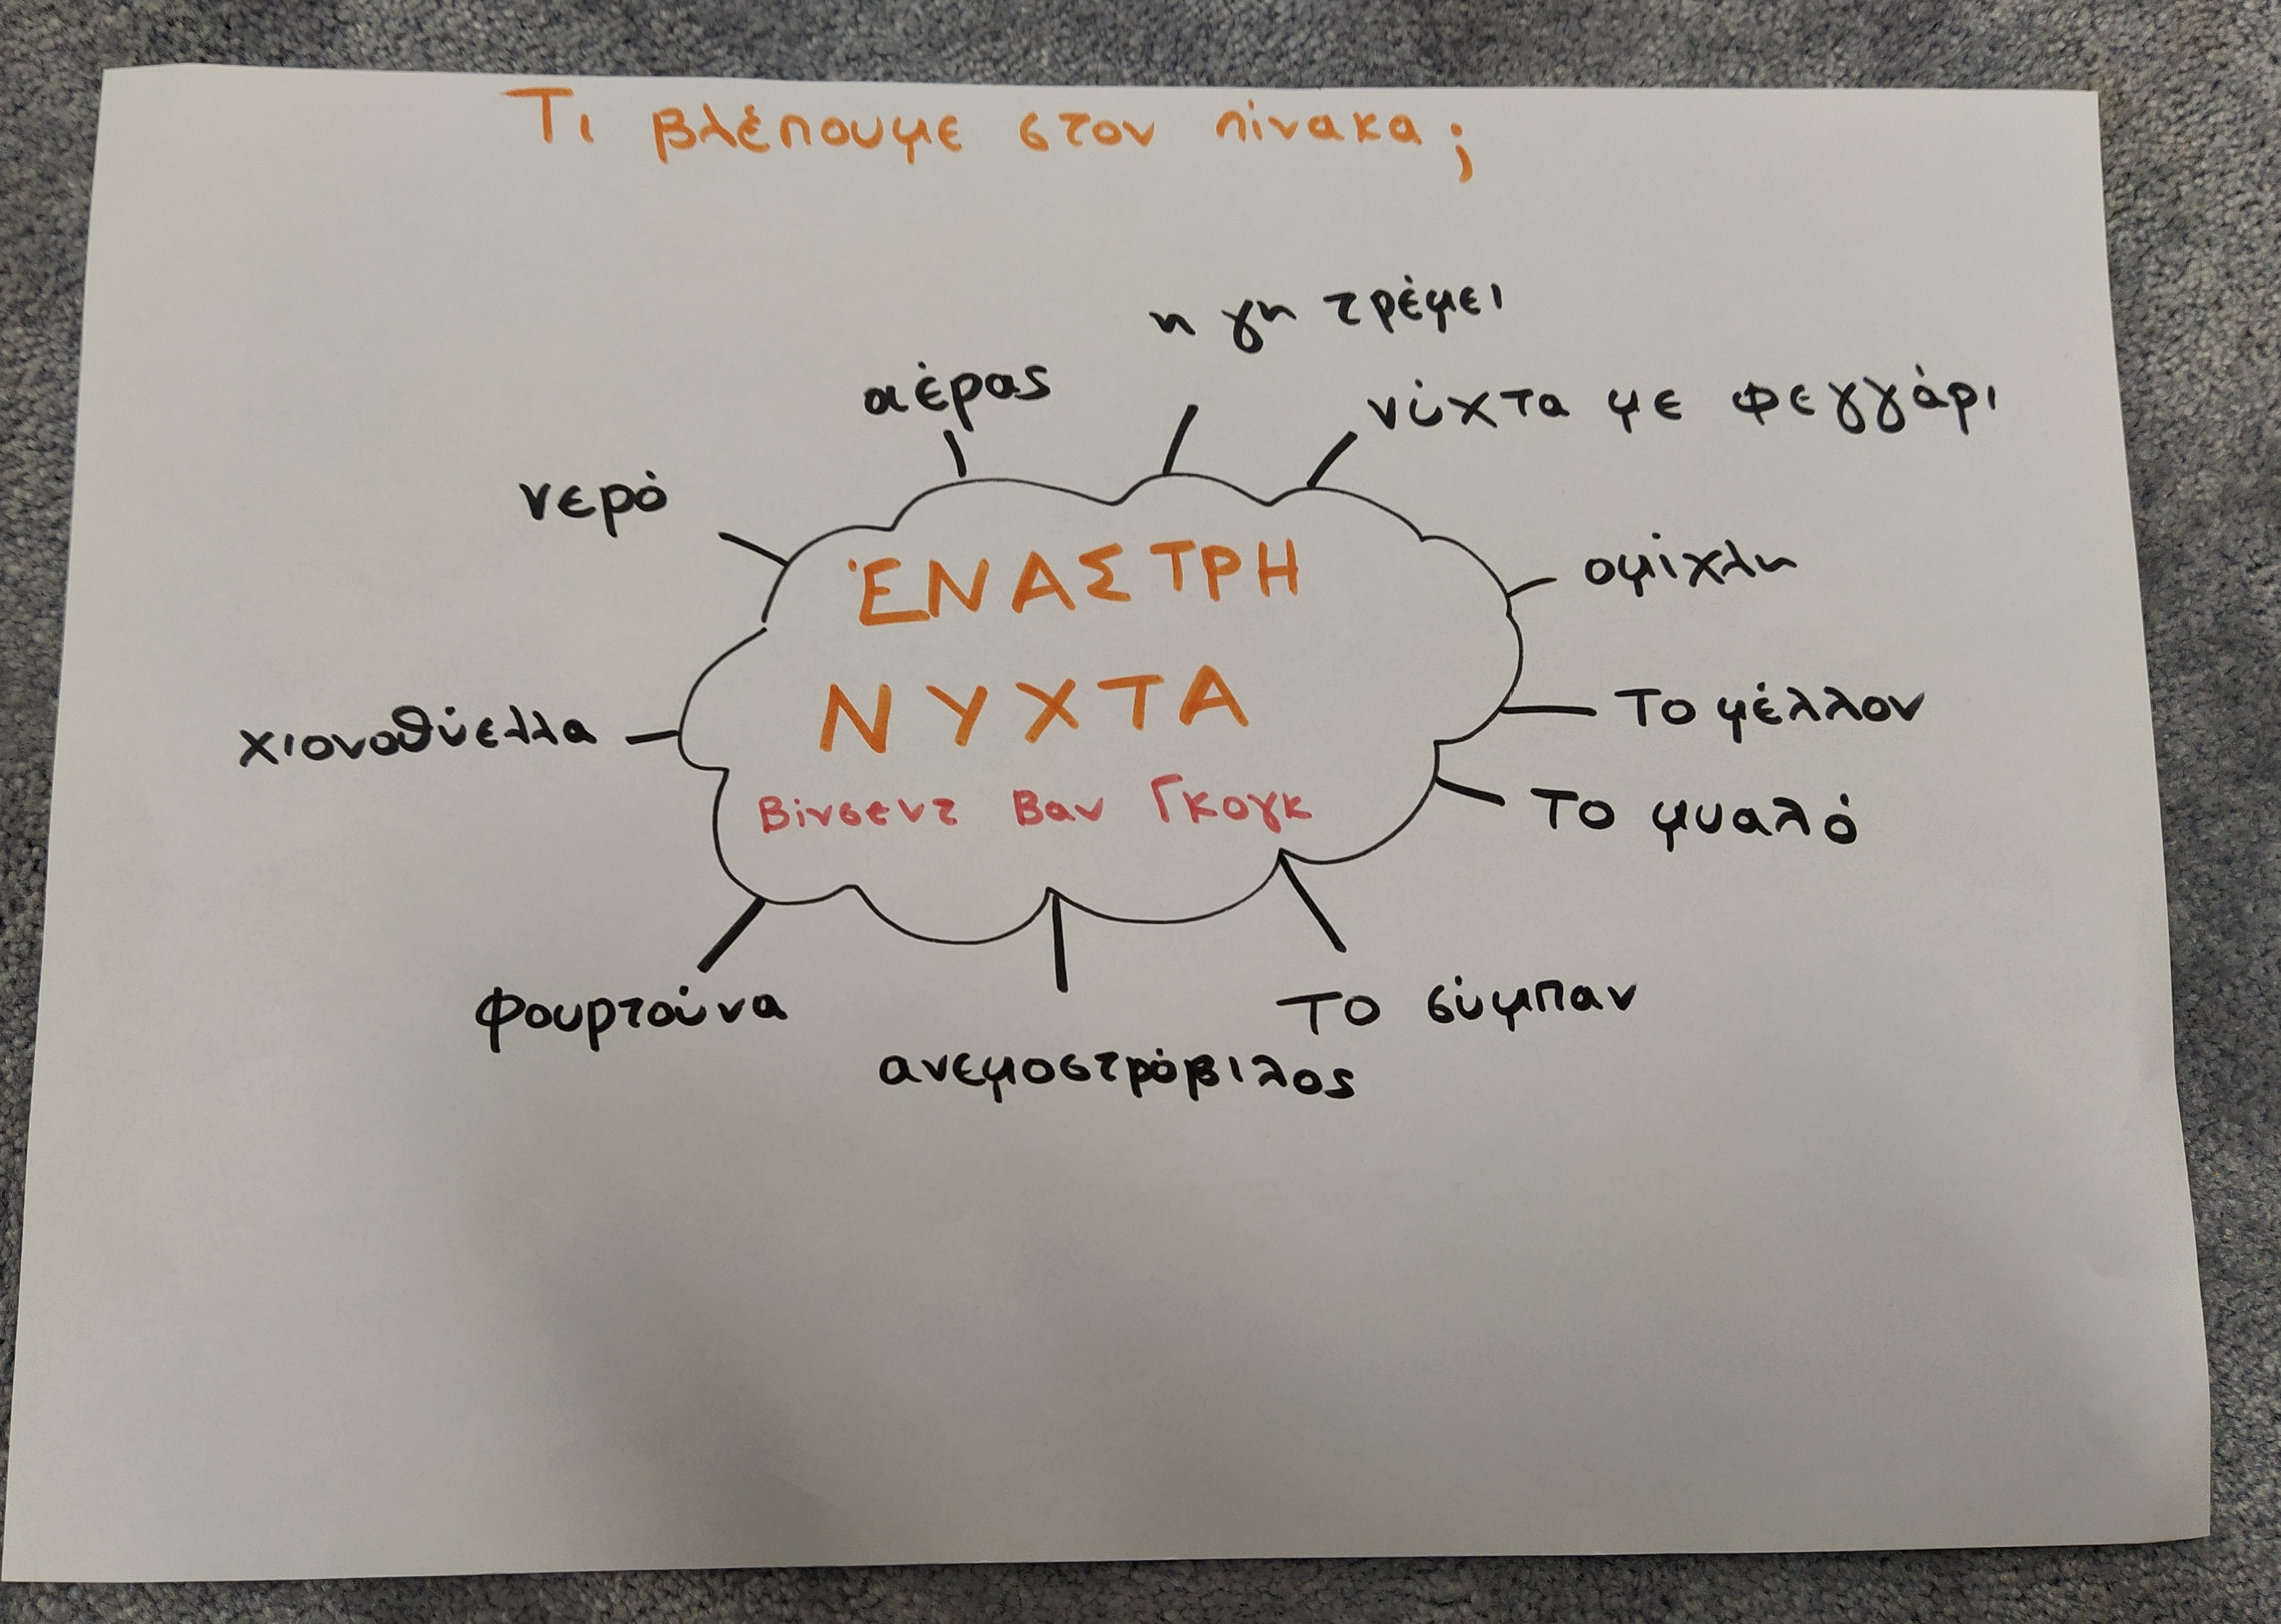 Τι βλέπουμε στον πίνακα;
η γη τρέμει
αέρας
νύχτα με φεγγάρι
νερό
ομίχλη
ΈΝΑΣΤΡΗ
ΝΥΧΤΑ
Βίνσεντ Βαν Γκογκ
χιονοθύελλα
Το μέλλον
Το μυαλό
φουρτούνα
ανεμοστρόβιλος
Το σύμπαν